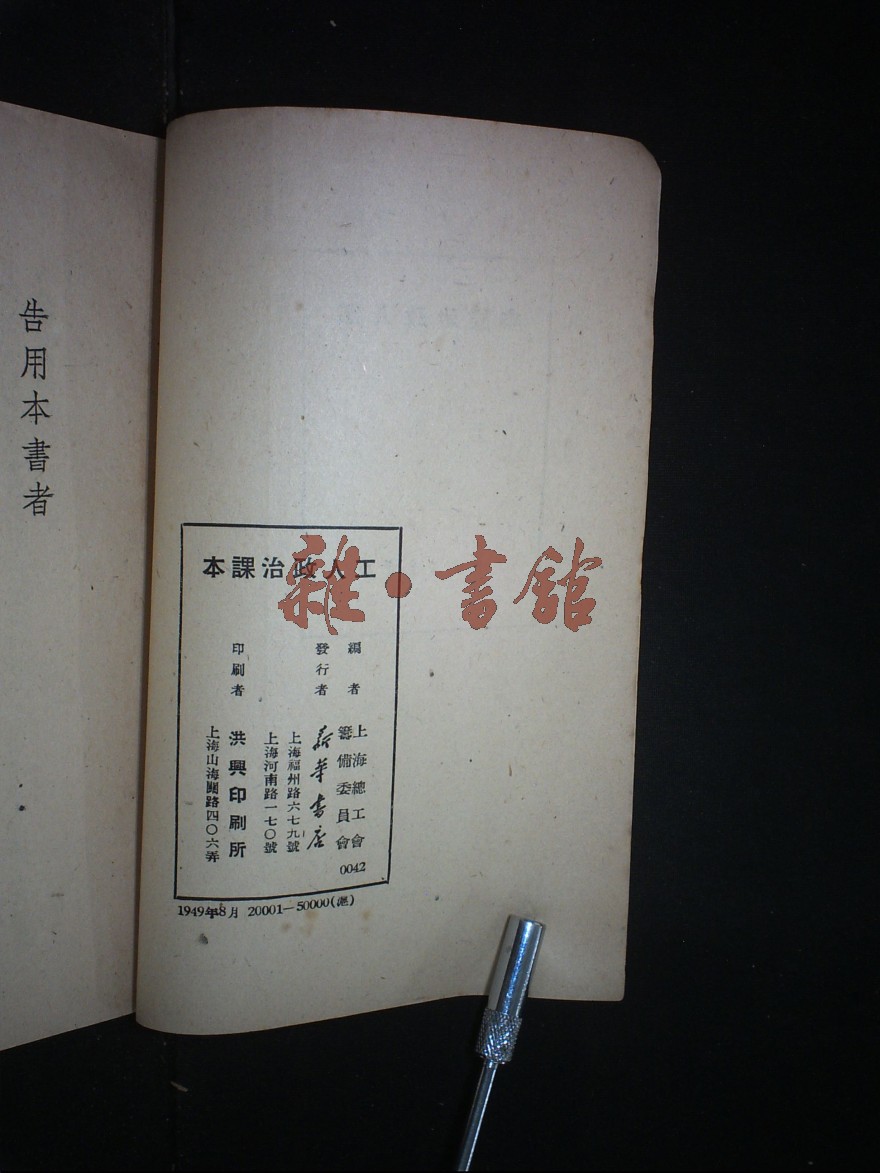 工人政治課本
編者
上海總工會
籌備委員會
0042
發行者
新華書店
上海福州路六七九號
上海河南路一七〇號
印刷者
洪興印刷所
上海山海關路四〇六弄
1949年8月 20001—50000(滬)
告用本書者
雜·書館